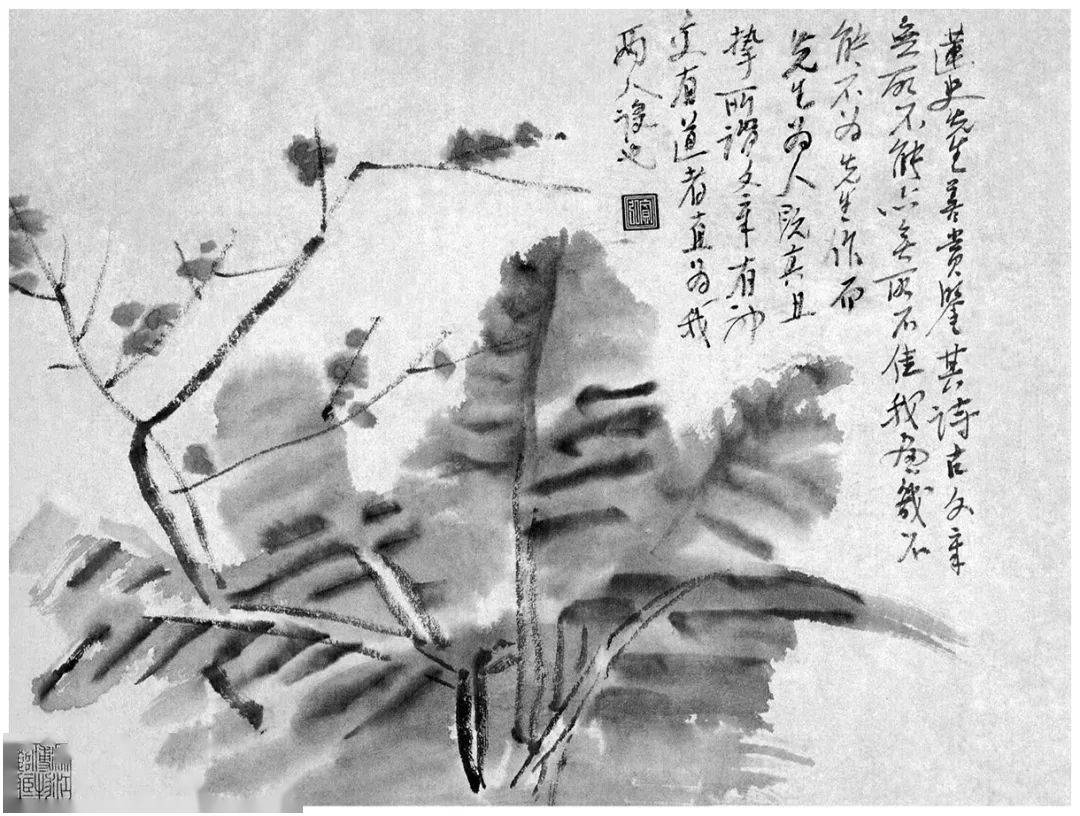 蓮史先生善賞鑒其詩古文章
無所不能亦無所不佳我畫幾不
能不為先生作而
先生為人既真且
摯所謂文章有神
交有道者直為我
兩人也